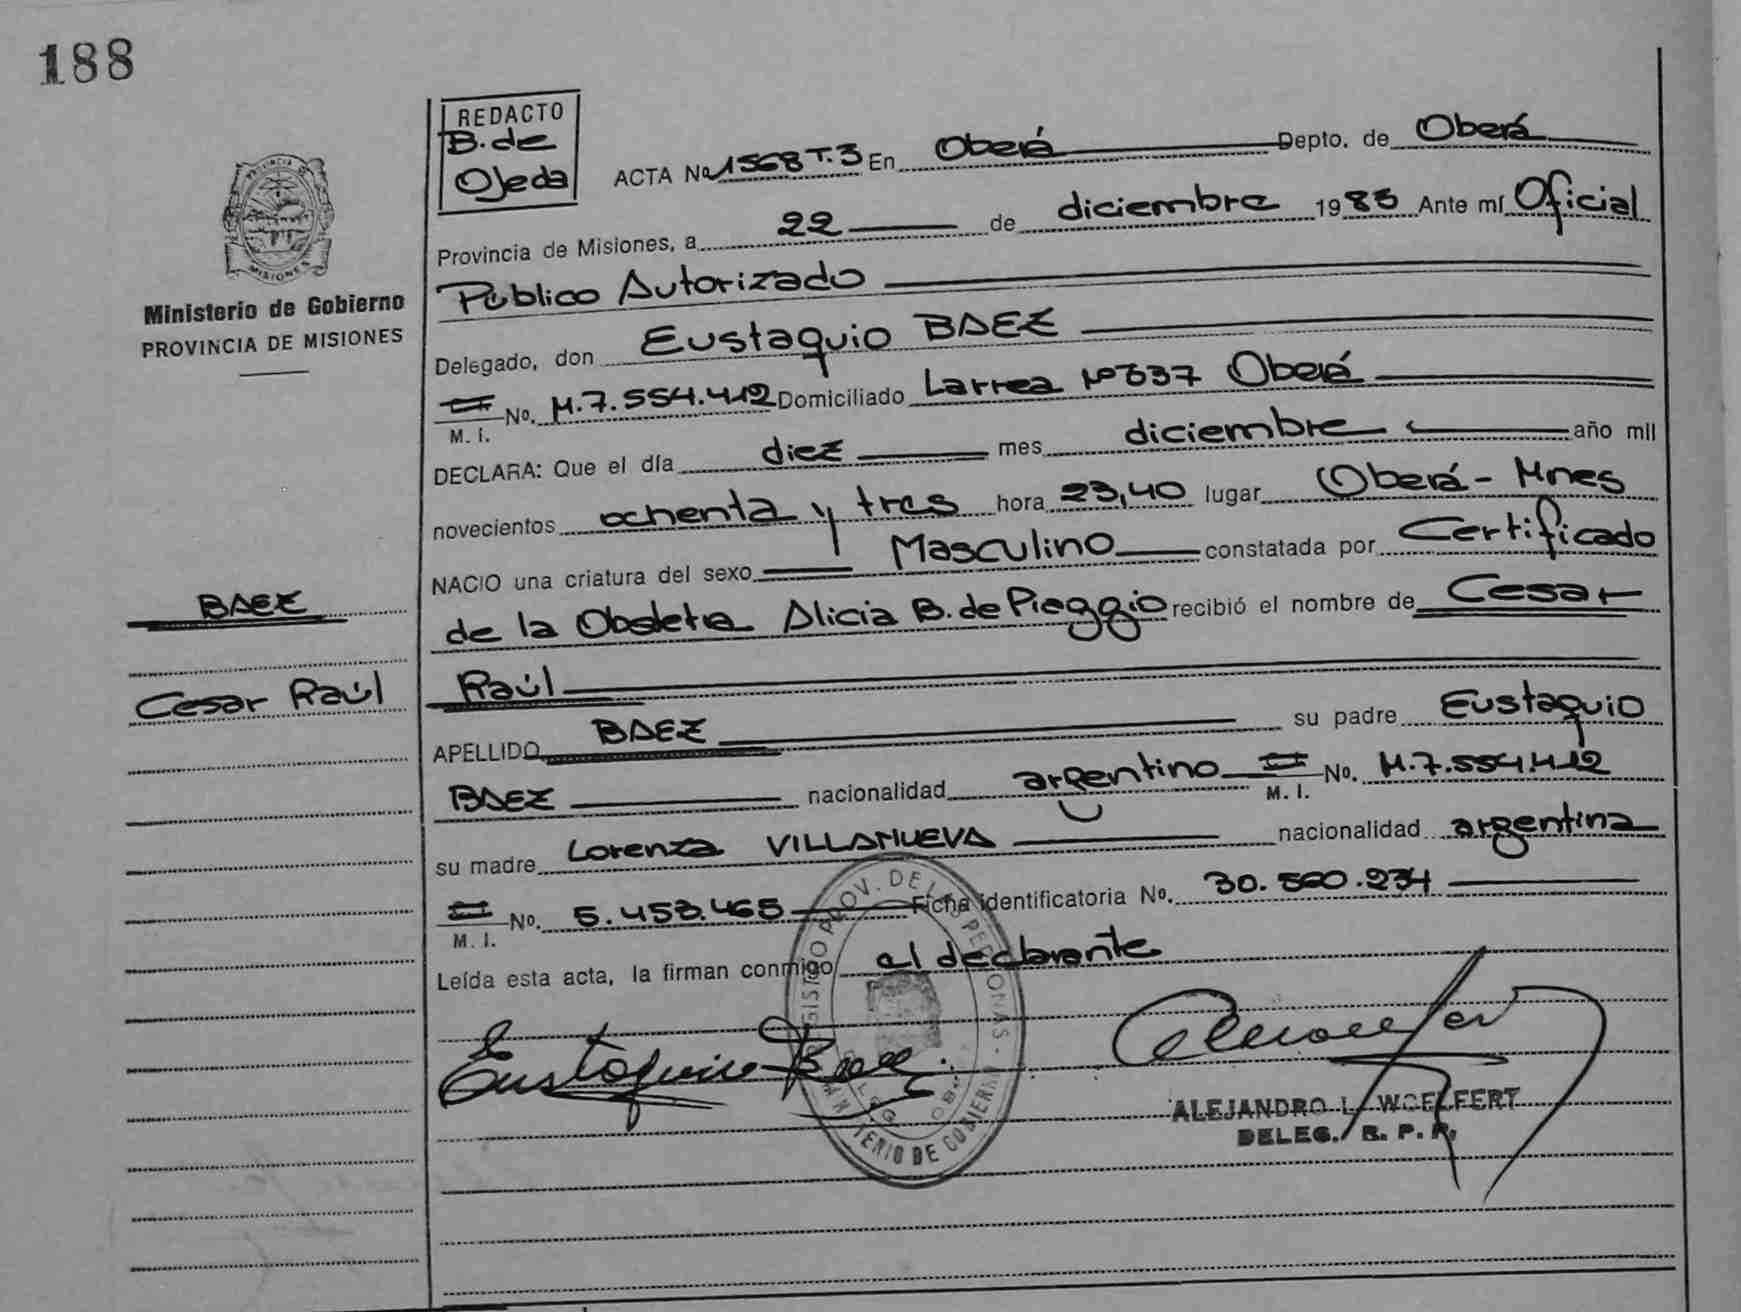 188
REDACTO
B. de
Ojeda
ACTA No 1568 T. 3 En Oberá Depto. de Oberá
Provincia de Misiones, a 22 de diciembre 1983 Ante mí Oficial
Público Autorizado
Delegado, don Eustaquio BAEZ
M. I. No. M. 7.554.412 Domiciliado Larrea Nº 637 Oberá
DECLARA: Que el día diez mes diciembre año mil
novecientos ochenta y tres hora 23,40 lugar Oberá - Mnes
NACIO una criatura del sexo Masculino constatada por Certificado
de la Obstetra Alicia B. de Piaggio recibió el nombre de Cesar
Raúl
APELLIDO BAEZ su padre Eustaquio
BAEZ nacionalidad argentino M. I. No. M. 7.554.412
su madre Lorenza VILLANUEVA nacionalidad argentina
M. I. No. 5.453.465 Ficha identificatoria No. 30.560.234
Leída esta acta, la firman conmigo el declarante
Eustaquio Baez
ALEJANDRO L. WOELFERT
DELEG. R. P. P.
PROVINCIA
MISIONES
Ministerio de Gobierno
PROVINCIA DE MISIONES
BAEZ
Cesar Raúl
REGISTRO PROV. DE LAS PERSONAS
MINISTERIO DE GOBIERNO